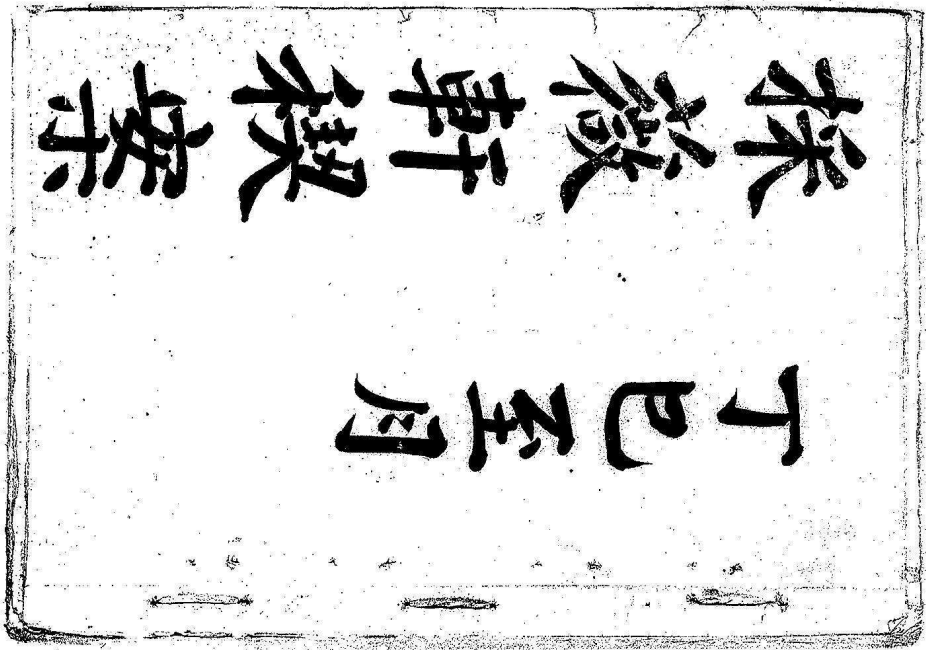 採薇軒禊案
丁巳至月